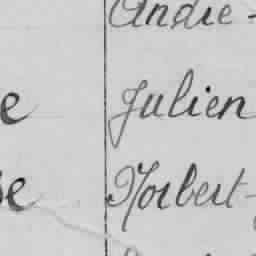 André -
e Julien
se Norbert -